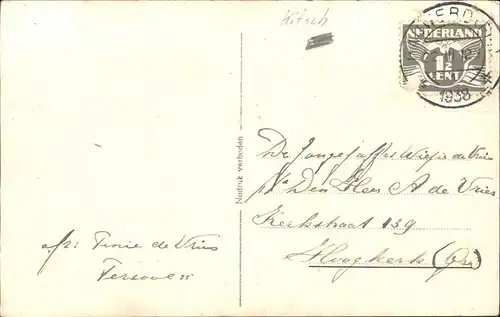 Kitsch
NEDERLAND
1½
CENT
1938
Nadruk verboden
De Jongejuffr. Wiepie de Vries
p/a Den Heer A de Vries
Kerkstraat 139
Hoogkerk (Gr.)
afz: Tinie de Vries